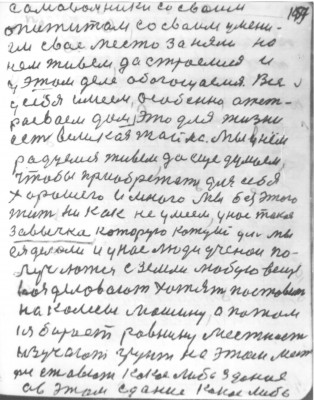 самовольники со своим
опытом со своим умени-
ем свае место заняли но
нем живем да строемся и
у этом деле обогощаемся. Все у
себя имеем, особенно отст-
раеваем дом, Это для жизни
есть великая тайна. Мы у нем
радуемся живем да еще думаем,
чтобы приобретать для себя
хорошего и много мы без этого
жить ни как не умеем, у нас такая
завычка которую кожуть уже мы
сделали и у нас люди ученаи по-
лучаются с земли любую вещь
хотят поставить
на колеси машину, а потом
бирает равнину местност
изучают грунт на этом мест
ставють какое либо здания
об этом сдание какое либо